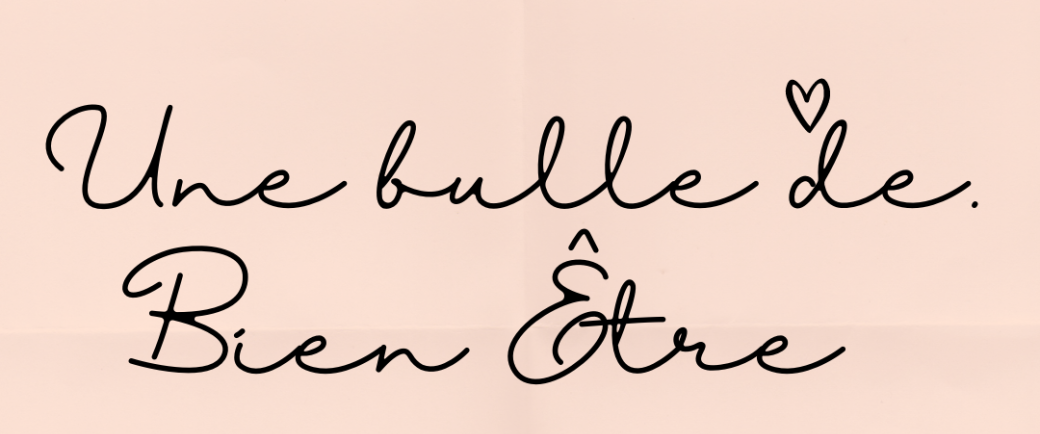 Une bulle de.
Bien Être